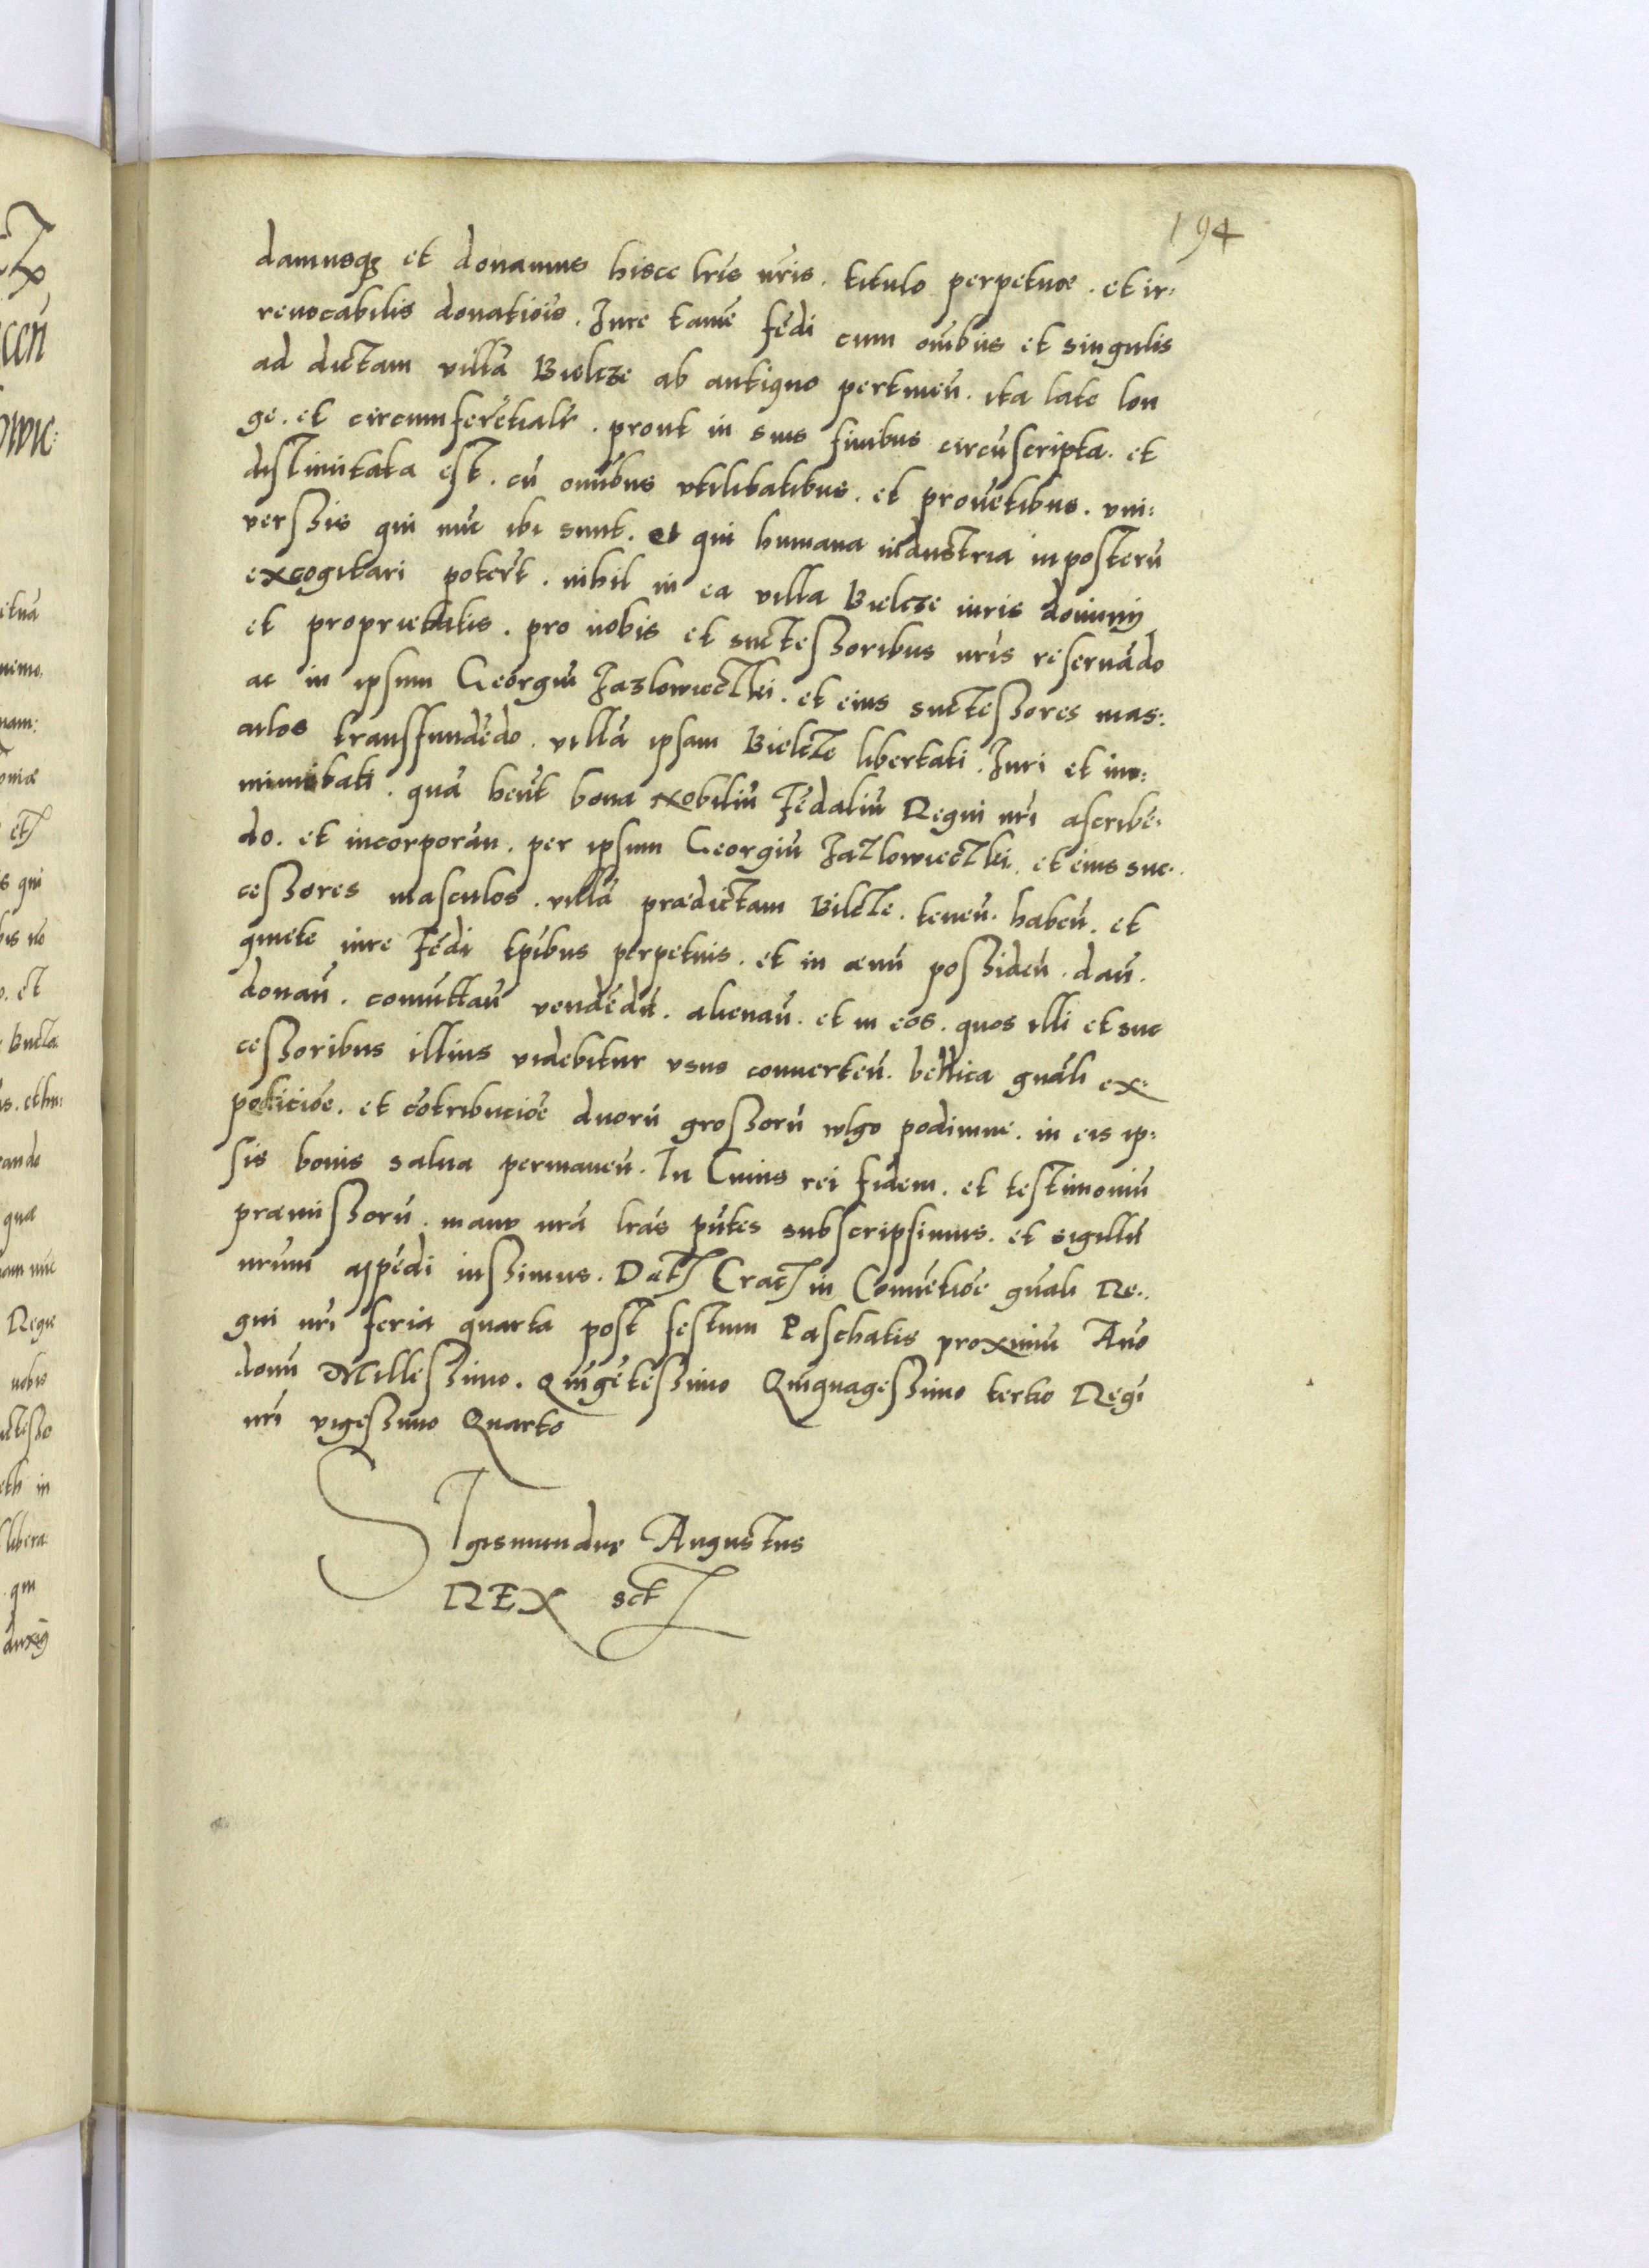 194
damusq₃ et donamus hisce lr̃is nr̃is . titulo perpetuae . et ir:
reuocabilis donatiõis . Iure tamẽ fẽdi cum oĩbus et singulis
ad dictam villã Bieltze ab antiquo pertineñ . ita late lon
ge . et circumferẽtialr̃ . prout in suis finibus circũscripta . et
distinctata est . cũ omĩbus vtilitatibus . et prouẽtibus . vni:
uerszis qui nũc ibi sunt . et qui humana industria inposterũ
excogitari poterĩt . nihil in ea villa Bieltze iuris dominij
et proprietatis . pro nobis et suctessoribus nr̃is reseruãdo
ac in ipsum Georgiũ Jazlowieczki . et eius suctessores mas:
culos transfundẽdo . villã ipsam Bielcze libertati . Iuri et im:
munitati . quã hẽnt bona Nobiliũ Fẽdaliũ Regni nr̃i ascribẽ:
do . et incorporañ . per ipsum Georgiũ Jazlowieczki . et eius suc:
cessores masculos . villã praedictam Bilcze . teneñ . habeñ . et
quiete iure Fẽdi tp̃ibus perpetuis . et in aeuũ possideñ . dañ .
donañ . comuttañ vendẽdũ . alienañ . et in eos . quos illi et suc
cessoribus illius videbitur vsus conuerteñ . bellica gnãli ex:
peticiõe . et cõtribuciõe duorũ grossorũ wlgo podimne . in eis ip:
sis bonis salua permaneñ . In Cuius rei fidem . et testimoniũ
praemissorũ . manu nr̃a lr̃as pñtes subscripsimus . et sigillũ
nr̃um appẽdi iussimus . Dat Crac in Conuẽtiõe gnãli Re:
gni nr̃i feria quarta post festum Paschatis proximũ Año
domĩ Millessimo . Quĩgẽtessimo Quĩquagessimo tertio Regĩ
nr̃i vigessimo Quarto
Sigismundus Augustus
REX sct